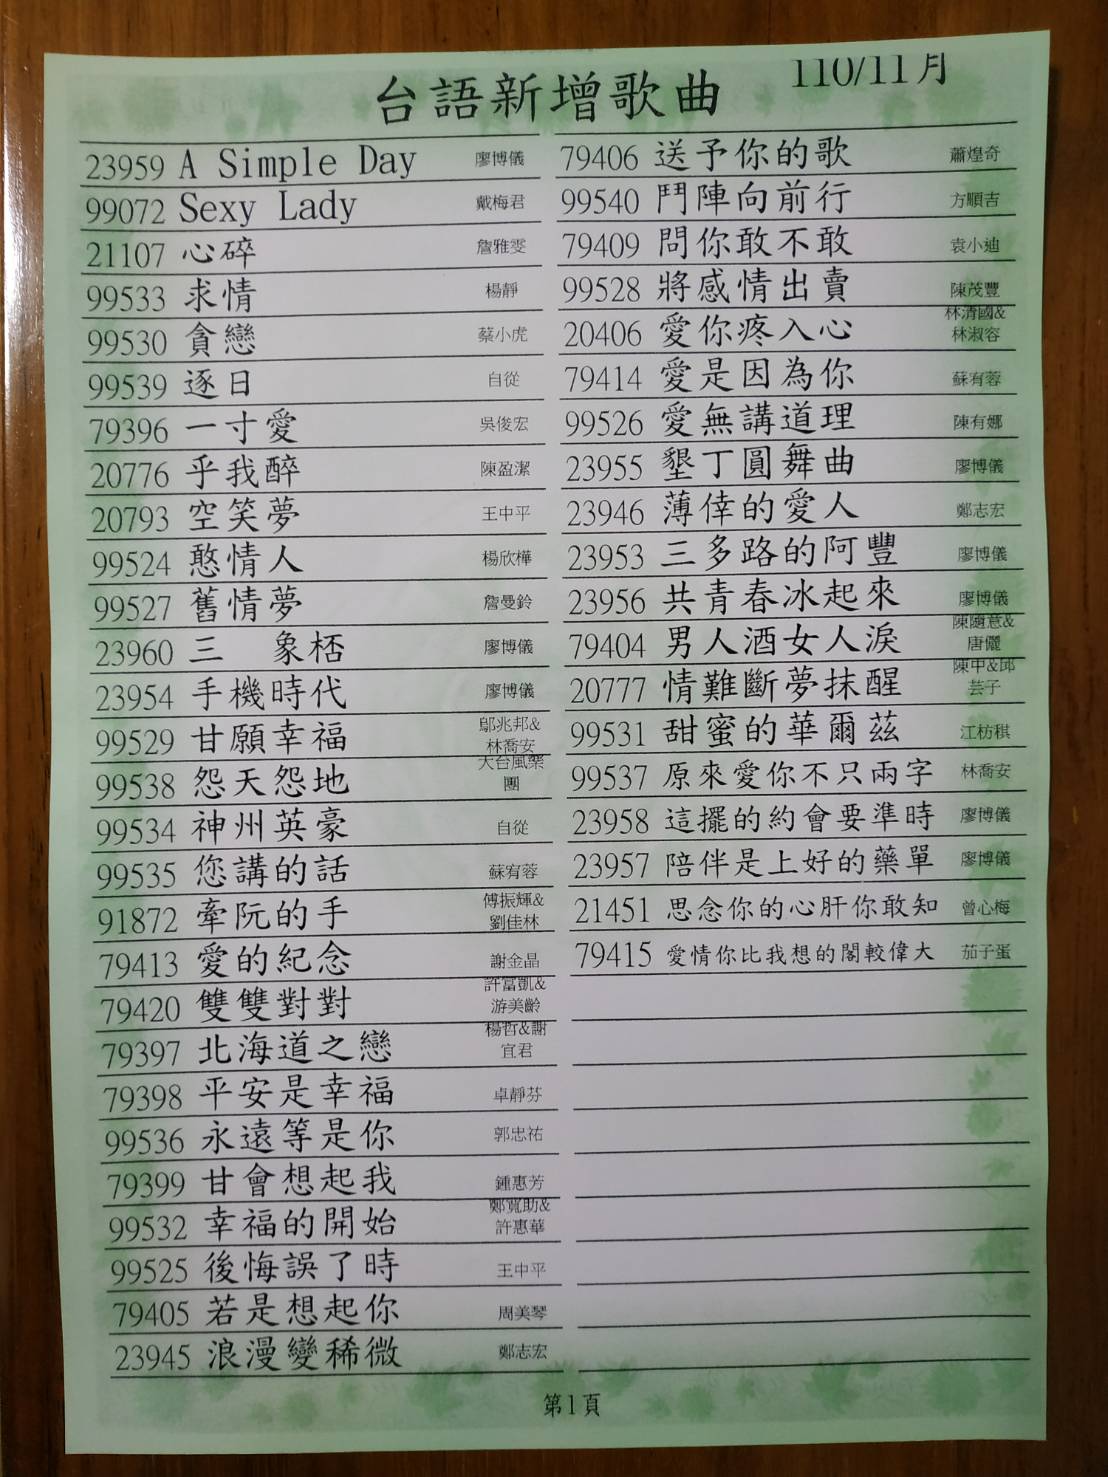 台語新增歌曲 110/11月
23959 A Simple Day 廖博儀
99072 Sexy Lady 戴梅君
21107 心碎 詹雅雯
99533 求情 楊靜
99530 貪戀 蔡小虎
99539 逐日 自從
79396 一寸愛 吳俊宏
20776 乎我醉 陳盈潔
20793 空笑夢 王中平
99524 憨情人 楊欣樺
99527 舊情夢 詹曼鈴
23960 三 象桮 廖博儀
23954 手機時代 廖博儀
99529 甘願幸福 鄔兆邦&林喬安
99538 怨天怨地 大台風樂團
99534 神州英豪 自從
99535 您講的話 蘇宥蓉
91872 牽阮的手 傅振輝&劉佳林
79413 愛的紀念 謝金晶
79420 雙雙對對 許富凱&游美齡
79397 北海道之戀 楊哲&謝宜君
79398 平安是幸福 卓靜芬
99536 永遠等是你 郭忠祐
79399 甘會想起我 鍾惠芳
99532 幸福的開始 鄭寬助&許惠華
99525 後悔誤了時 王中平
79405 若是想起你 周美琴
23945 浪漫變稀微 鄭志宏
79406 送予你的歌 蕭煌奇
99540 鬥陣向前行 方順吉
79409 問你敢不敢 袁小迪
99528 將感情出賣 陳茂豐
20406 愛你疼入心 林清國&林淑容
79414 愛是因為你 蘇宥蓉
99526 愛無講道理 陳有娜
23955 墾丁圓舞曲 廖博儀
23946 薄倖的愛人 鄭志宏
23953 三多路的阿豐 廖博儀
23956 共青春冰起來 廖博儀
79404 男人酒女人淚 陳隨意&唐儷
20777 情難斷夢抹醒 陳中&邱芸子
99531 甜蜜的華爾茲 江枋稘
99537 原來愛你不只兩字 林喬安
23958 這擺的約會要準時 廖博儀
23957 陪伴是上好的藥單 廖博儀
21451 思念你的心肝你敢知 曾心梅
79415 愛情你比我想的閣較偉大 茄子蛋
第1頁